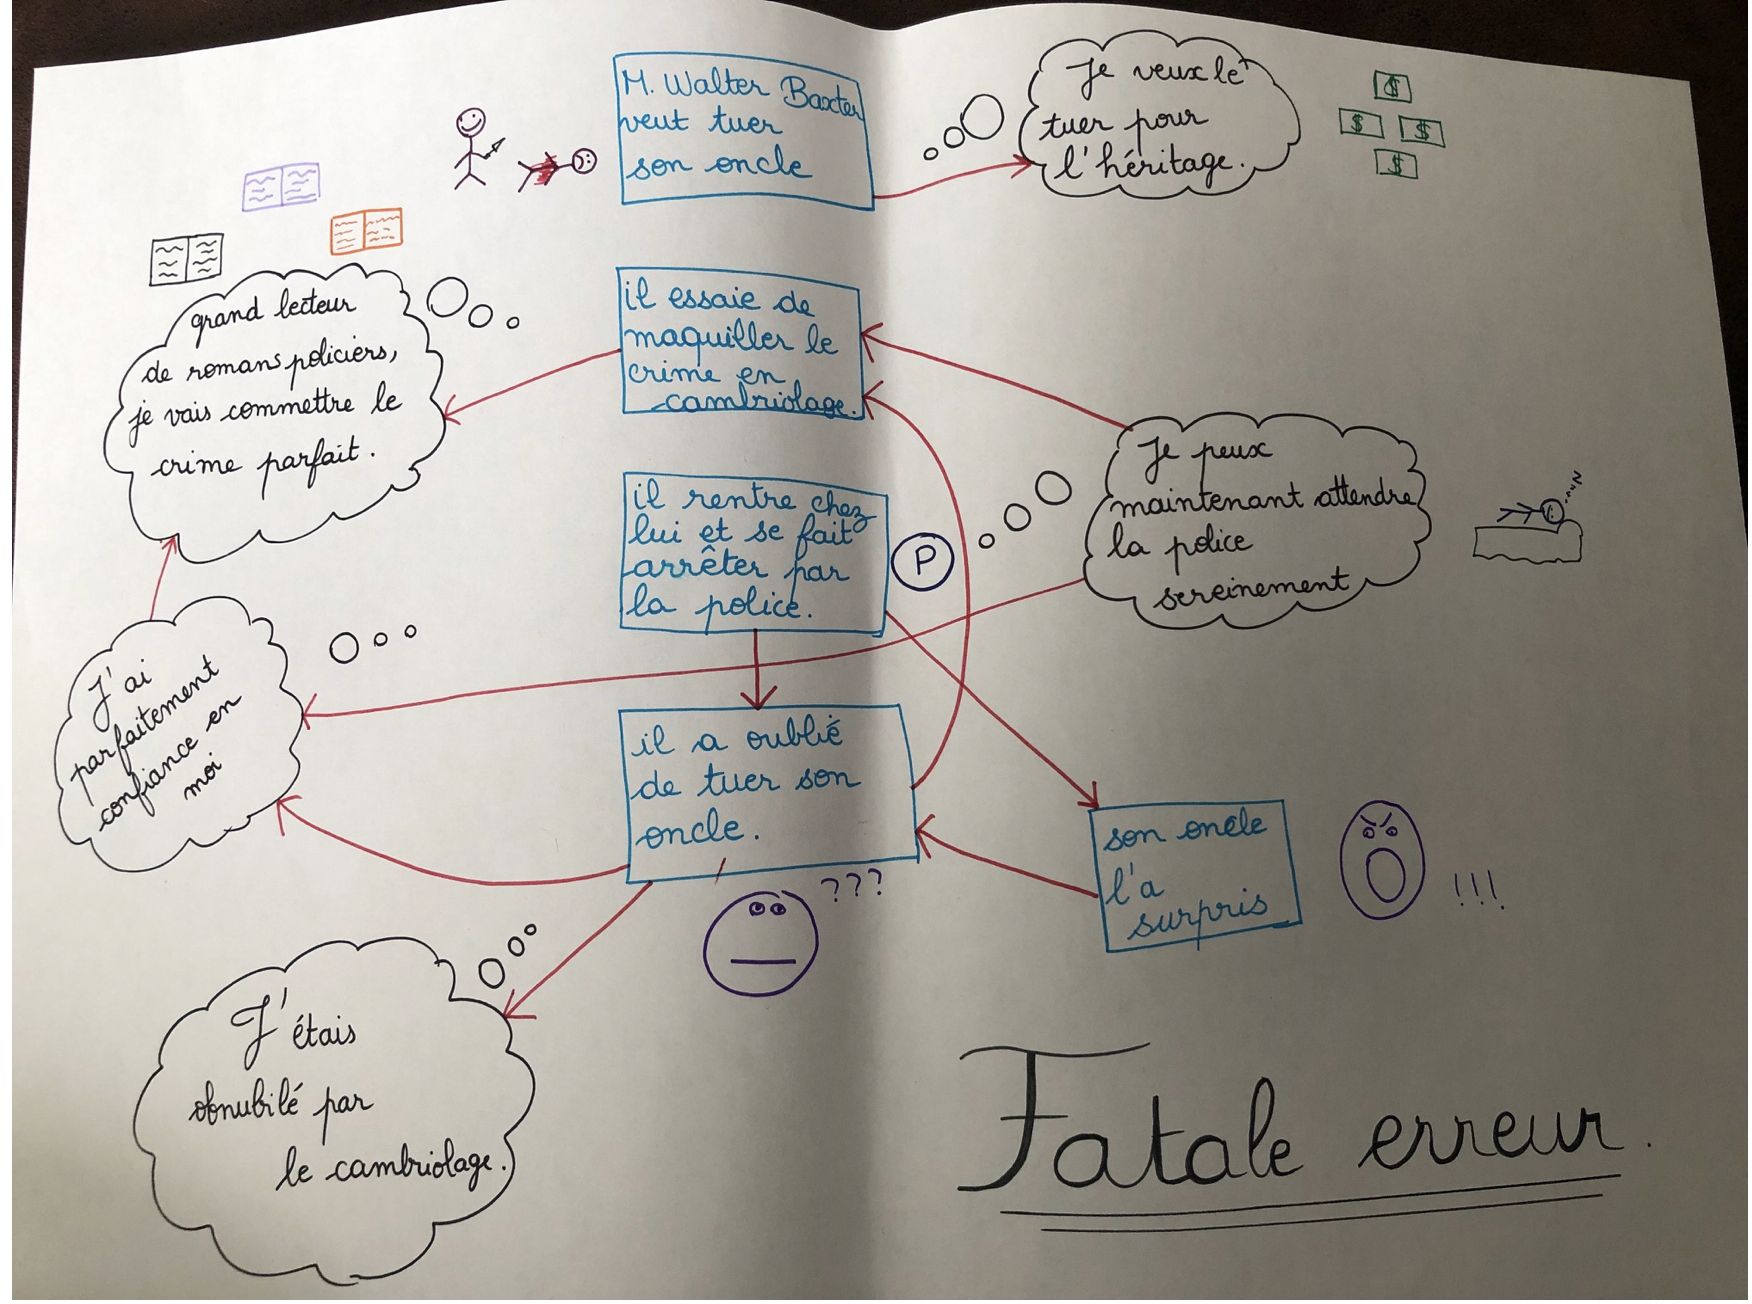 M. Walter Baxter
veut tuer
son oncle
Je veux le
tuer pour
l'héritage.
$
$ $
$
grand lecteur
de romans policiers,
je vais commettre le
crime parfait.
il essaie de
maquiller le
crime en
cambriolage.
il rentre chez
lui et se fait
arrêter par
la police.
P
Je peux
maintenant attendre
la police
sereinement
J'ai
parfaitement
confiance en
moi
il a oublié
de tuer son
oncle.
???
son oncle
l'a
surpris
!!!
J'étais
obnubilé par
le cambriolage.
Fatale erreur.